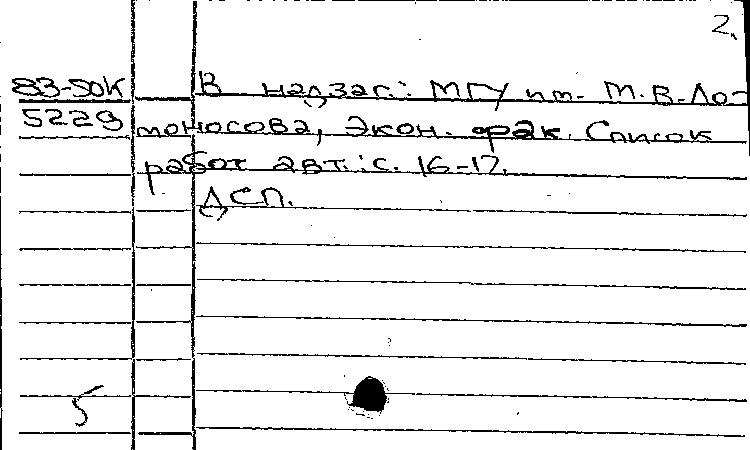 2.
83-50К В надзаг.: МГУ им. М.В.Ло-
5229 моносова, Экон. фак. Список
работ авт.: с. 16-17.
ДСП.
5